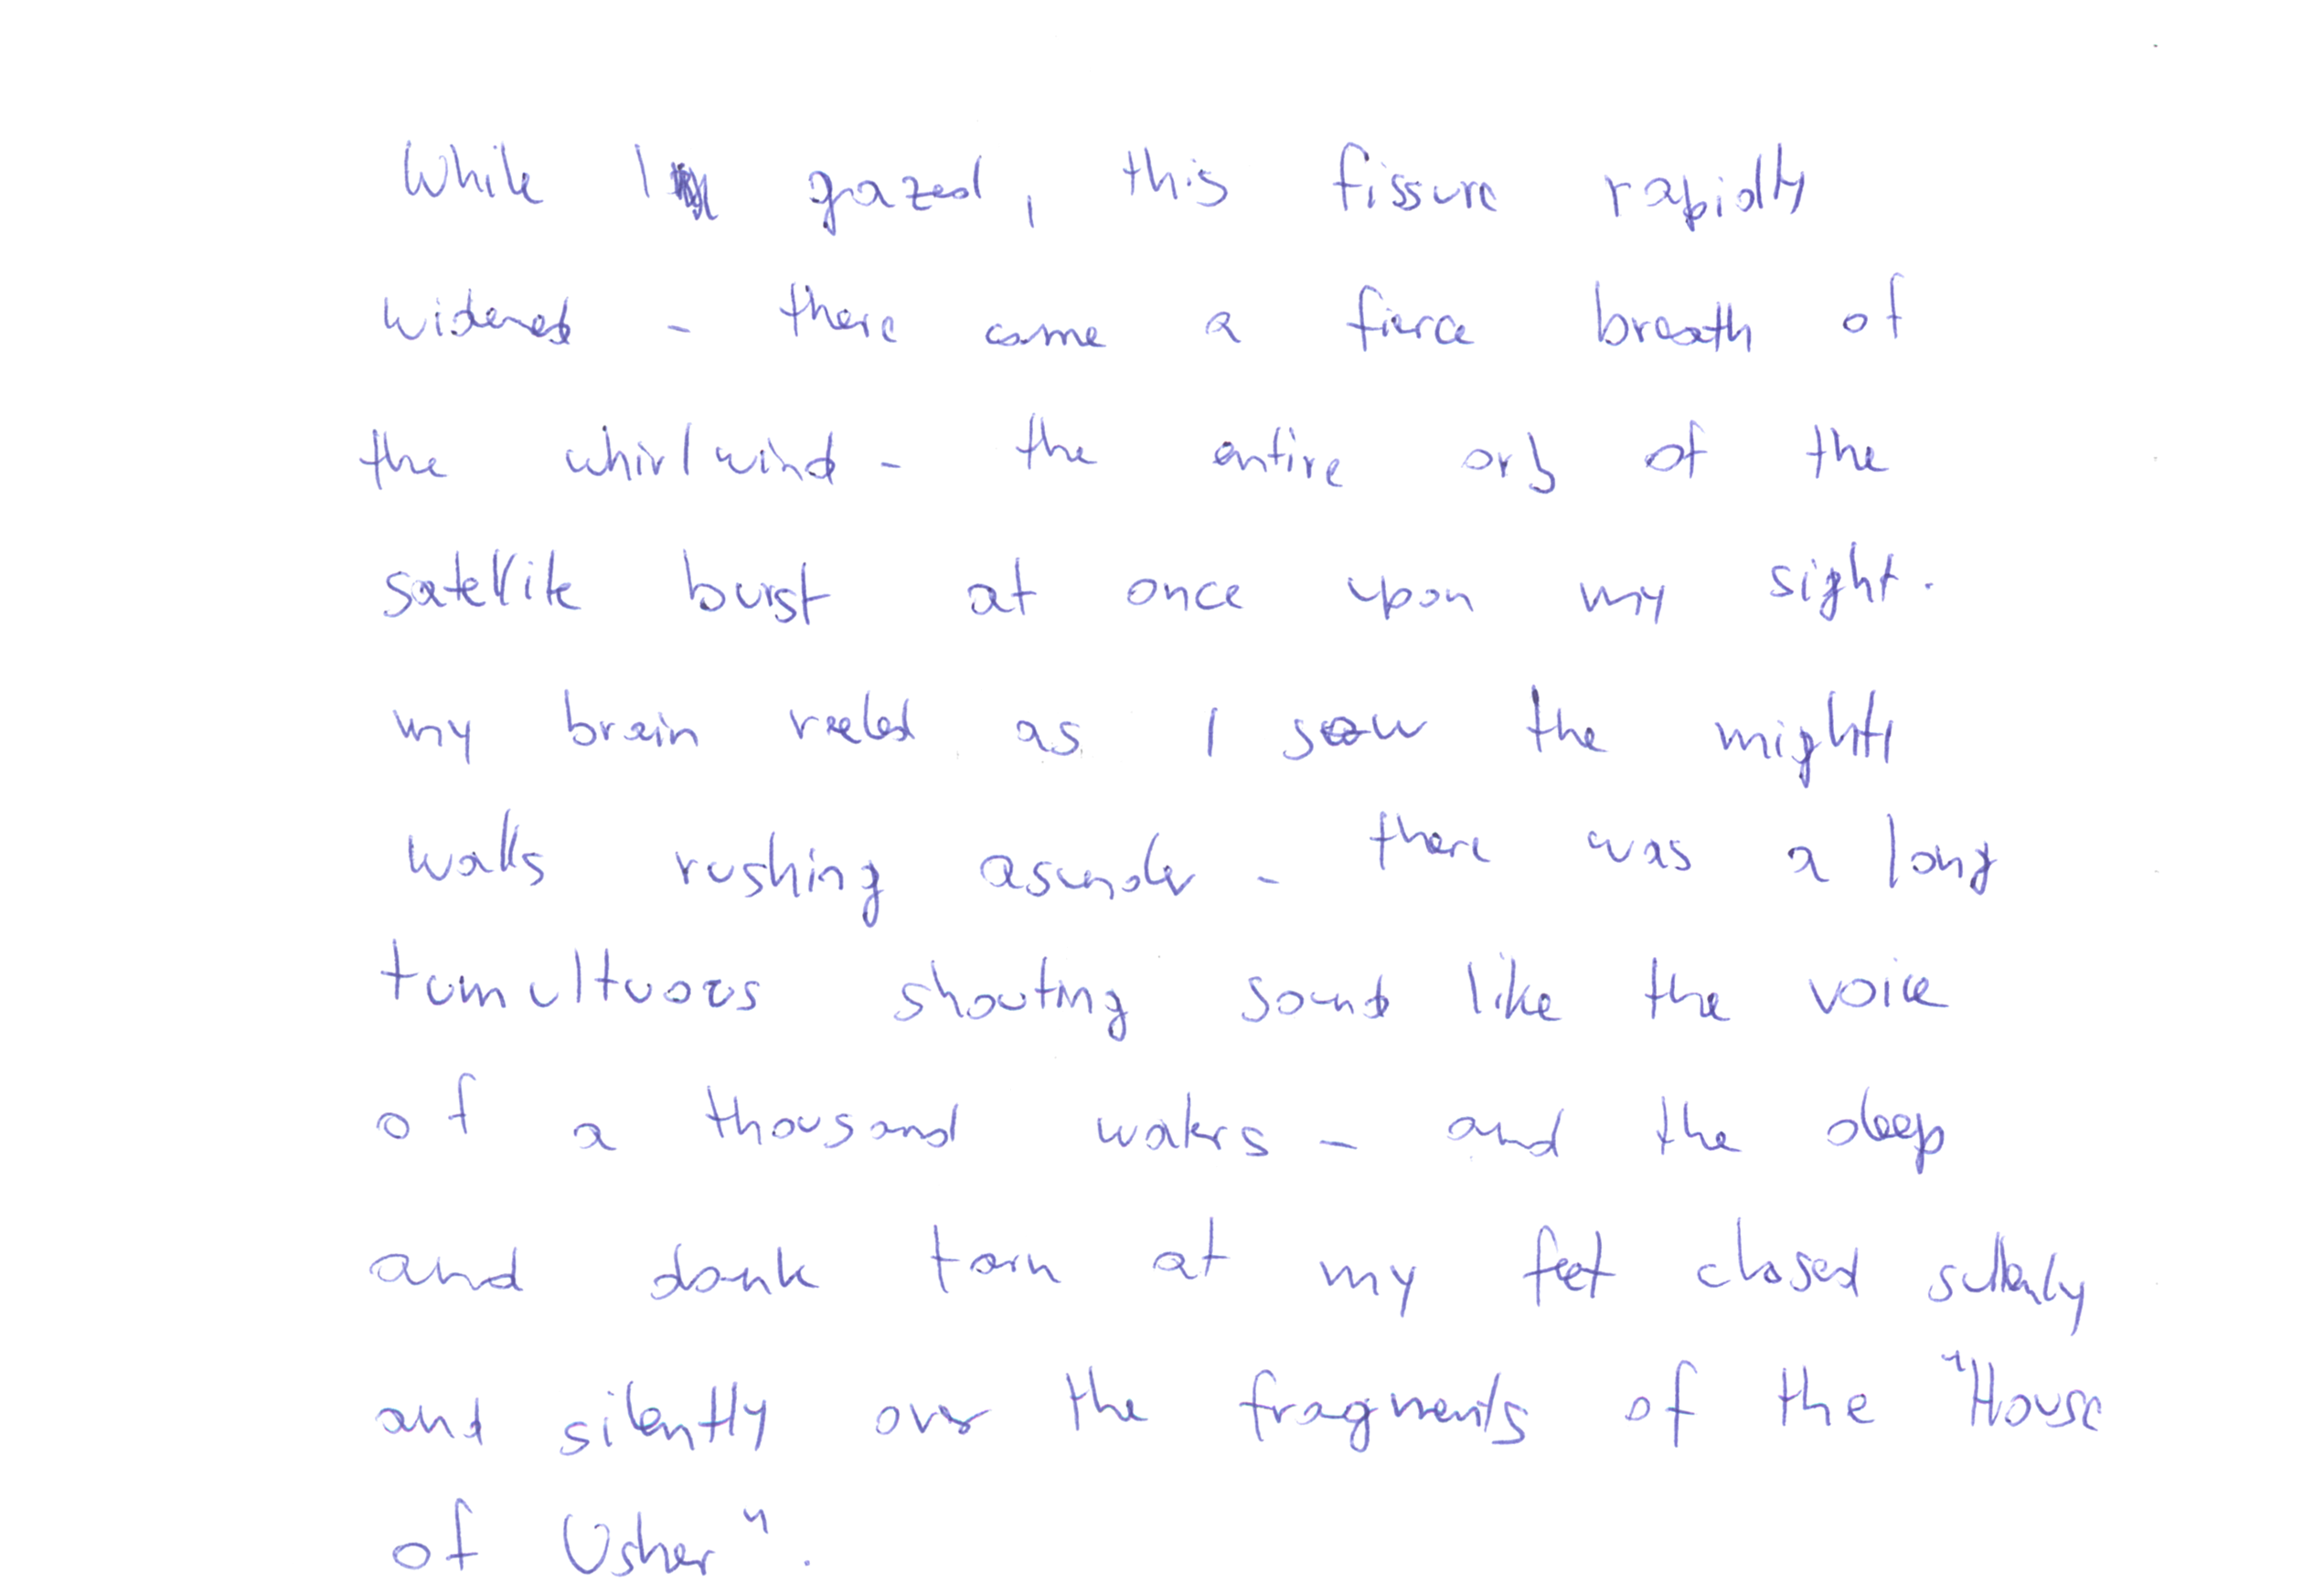 While I gazed, this fissure rapidly
widened - there came a fierce breath of
the whirlwind - the entire orb of the
satellite burst at once upon my sight.
my brain reeled as I saw the mighty
walls rushing asunder - there was a long
tumultuous shouting sound like the voice
of a thousand waters - and the deep
and dank tarn at my feet closed sullenly
and silently over the fragments of the "House
of Usher".